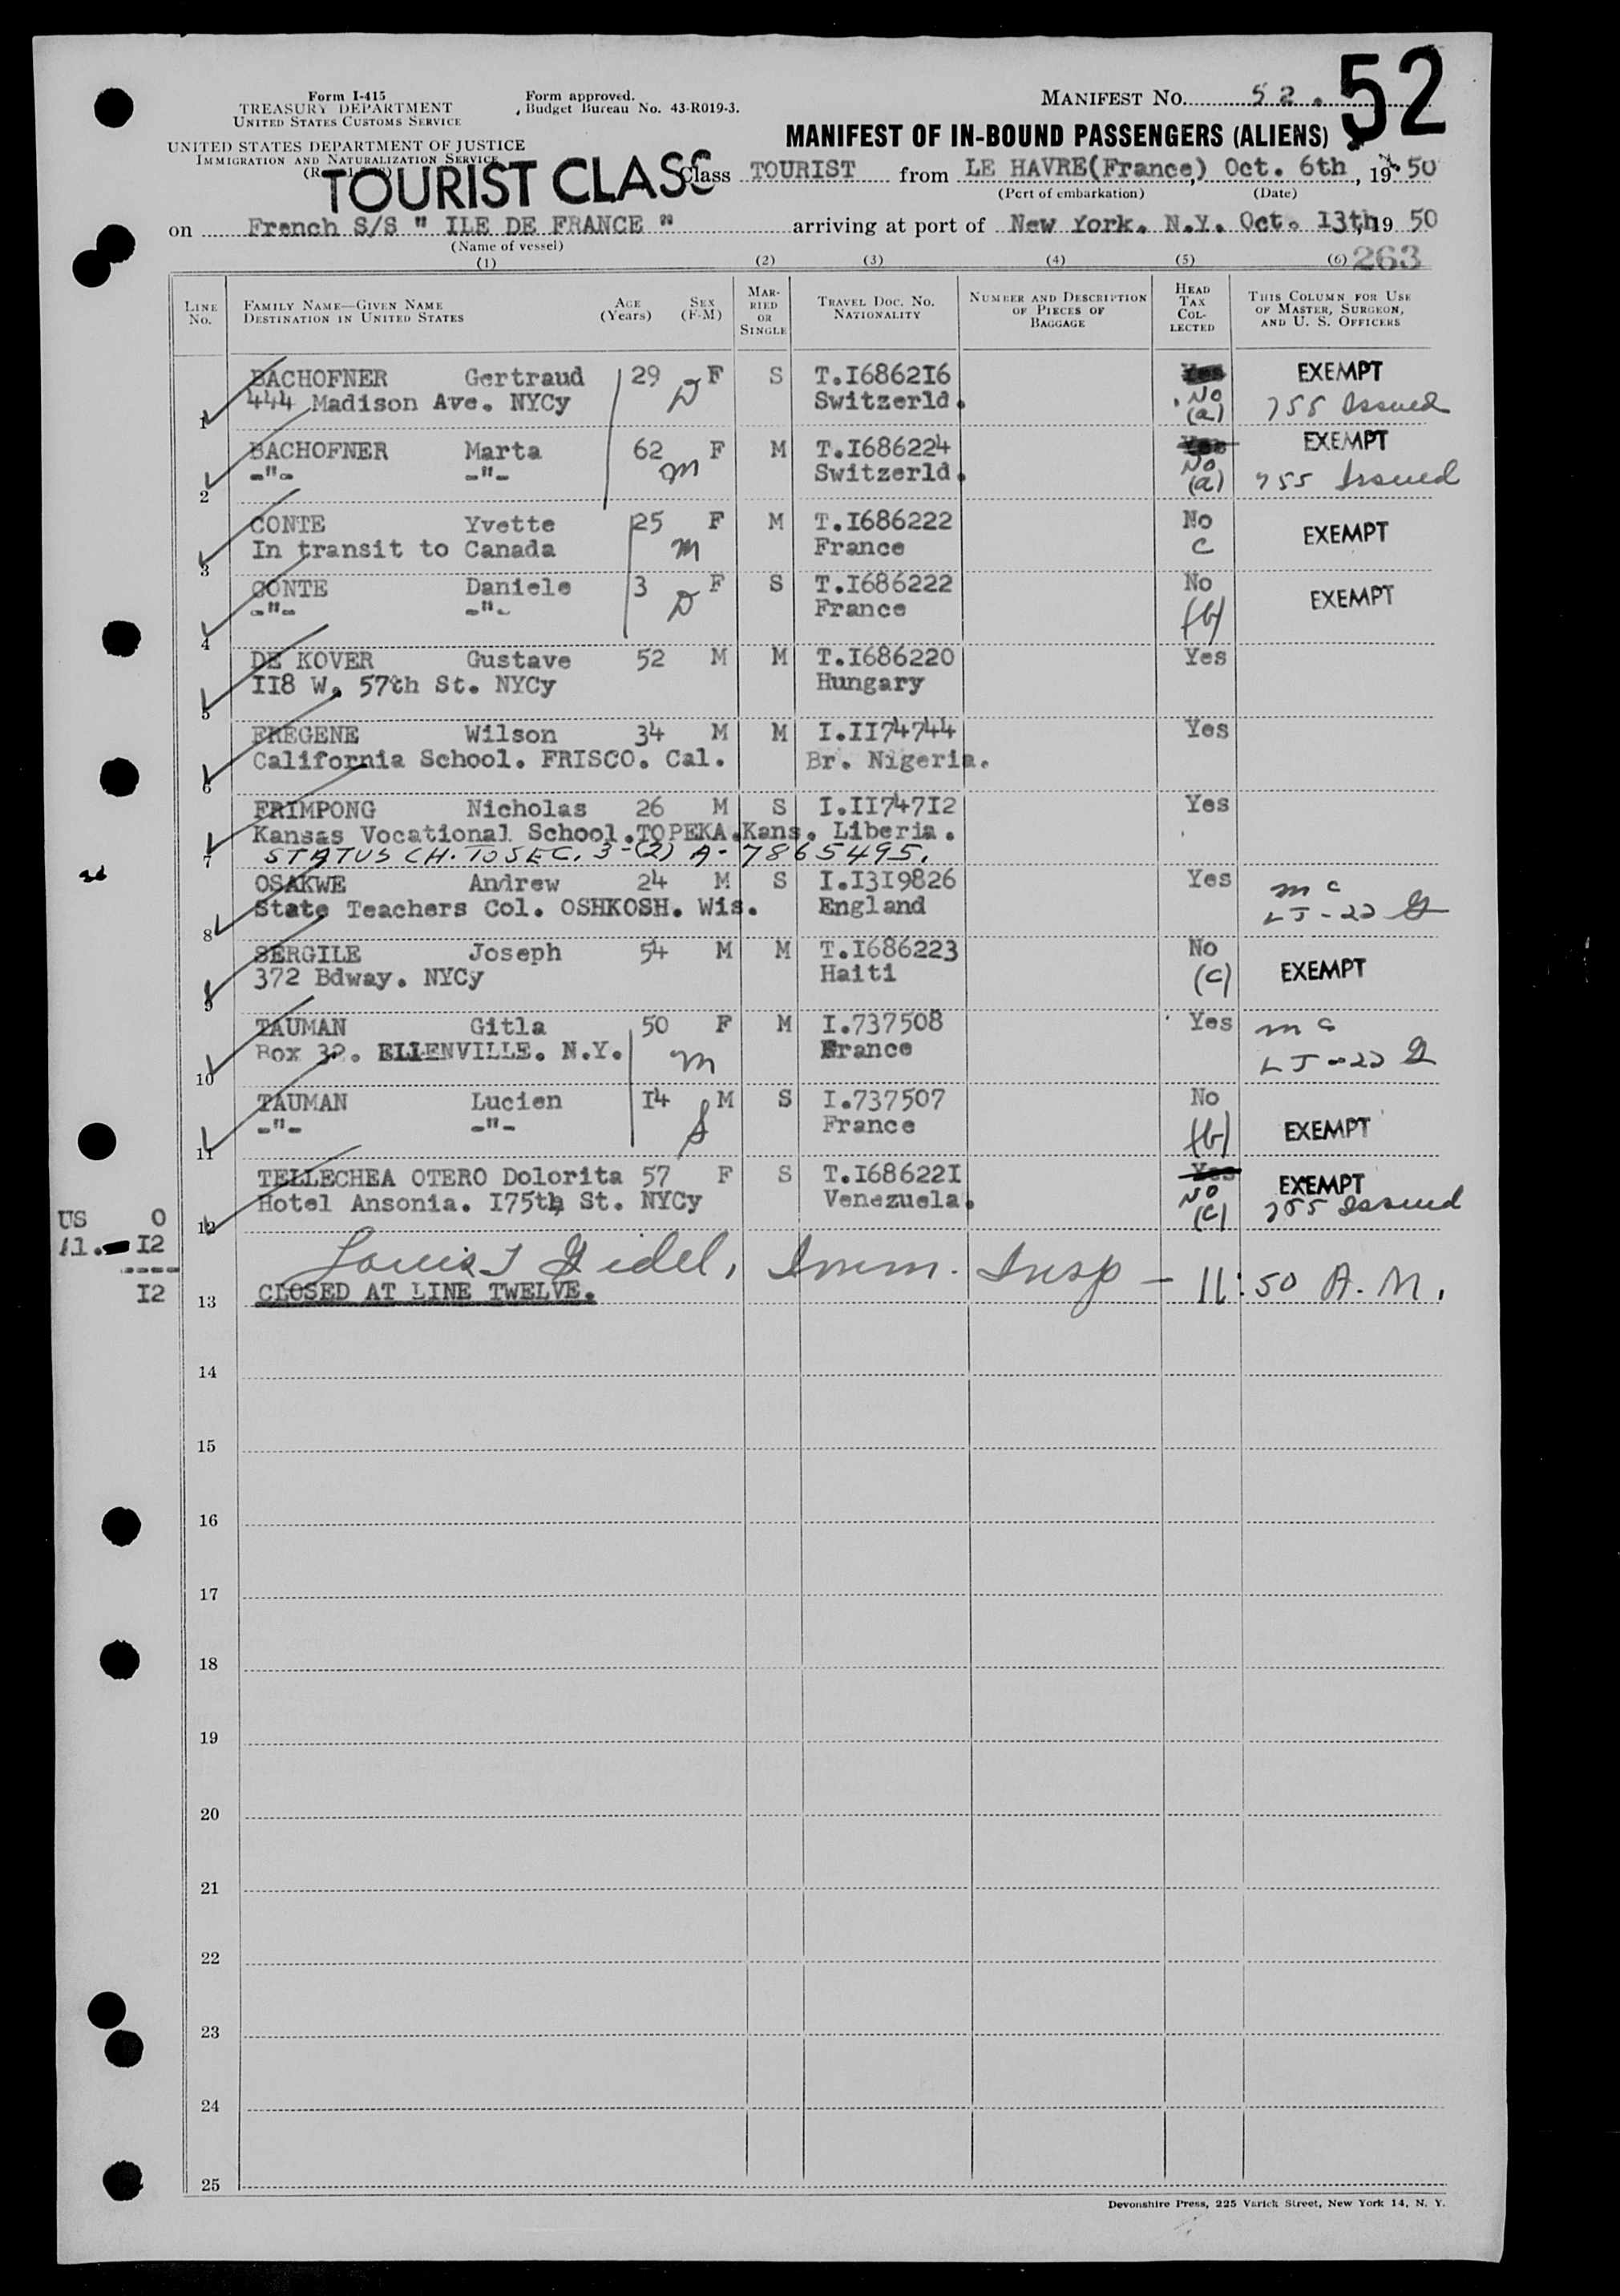 Form I-415
TREASURY DEPARTMENT
UNITED STATES CUSTOMS SERVICE
Form approved.
Budget Bureau No. 43-R019-3.
MANIFEST NO. 52.
52
UNITED STATES DEPARTMENT OF JUSTICE
IMMIGRATION AND NATURALIZATION SERVICE
MANIFEST OF IN-BOUND PASSENGERS (ALIENS)
TOURIST CLASS
Class TOURIST from LE HAVRE(France), Oct. 6th, 1950
(Port of embarkation) (Date)
on French S/S " ILE DE FRANCE " arriving at port of New York. N.Y. Oct. 13th, 19 50
(Name of vessel)
(1) (2) (3) (4) (5) (6) 263
LINE No. FAMILY NAME—GIVEN NAME DESTINATION IN UNITED STATES AGE (Years) SEX (F-M) MARRIED OR SINGLE TRAVEL DOC. NO. NATIONALITY NUMBER AND DESCRIPTION OF PIECES OF BAGGAGE HEAD TAX COLLECTED THIS COLUMN FOR USE OF MASTER, SURGEON, AND U. S. OFFICERS
BACHOFNER Gertraud 29 F S T.I6862I6 Yes EXEMPT
1 444 Madison Ave. NYCy D Switzerld. No (a) 755 Issued
BACHOFNER Marta 62 F M T.I686224 Yes EXEMPT
2 -"- -"- m Switzerld. No (a) 755 Issued
CONTE Yvette 25 F M T.I686222 No EXEMPT
3 In transit to Canada m France c
CONTE Daniele 3 F S T.I686222 No EXEMPT
4 -"- -"- D France (b)
DE KOVER Gustave 52 M M T.I686220 Yes
5 II8 W. 57th St. NYCy Hungary
EREGENE Wilson 34 M M I.II74744 Yes
6 California School. FRISCO. Cal. Br. Nigeria.
FRIMPONG Nicholas 26 M S I.II747I2 Yes
Kansas Vocational School.TOPEKA.Kans. Liberia.
7 STATUS CH. TO SEC. 3-(2) A-7865495.
OSAKWE Andrew 24 M S I.I3I9826 Yes m c
8 State Teachers Col. OSHKOSH. Wis. England LJ-22
SERGILE Joseph 54 M M T.I686223 No EXEMPT
9 372 Bdway. NYCy Haiti (c)
TAUMAN Gitla 50 F M I.737508 Yes m c
10 Box 32. ELLENVILLE. N.Y. m France LJ-22
TAUMAN Lucien I4 M S I.737507 No EXEMPT
11 -"- -"- S France (b)
TELLECHEA OTERO Dolorita 57 F S T.I68622I Yes EXEMPT
12 Hotel Ansonia. I75th St. NYCy Venezuela. No (c) 755 Issued
US 0
Al. I2
----
I2
Louis Gidel, Imm. Insp - 11:50 A.M.
13 CLOSED AT LINE TWELVE.
14
15
16
17
18
19
20
21
22
23
24
25
Devonshire Press, 225 Varick Street, New York 14, N. Y.